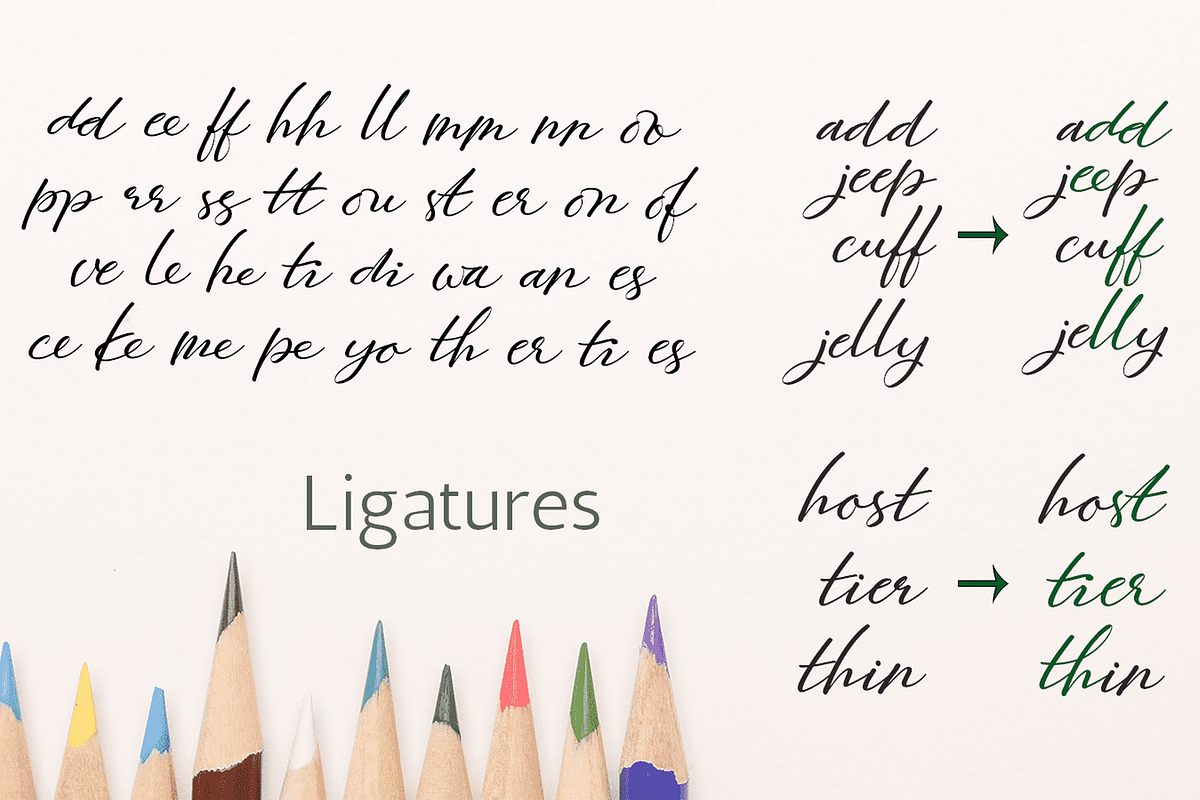 dd ee ff hh ll mm nn oo
pp rr ss tt ou st er on of
ve le he ti di wa an es
ce ke me pe yo th er ti es
Ligatures
add → add
jeep jeep
cuff cuff
jelly jelly
host host
tier → tier
thin thin